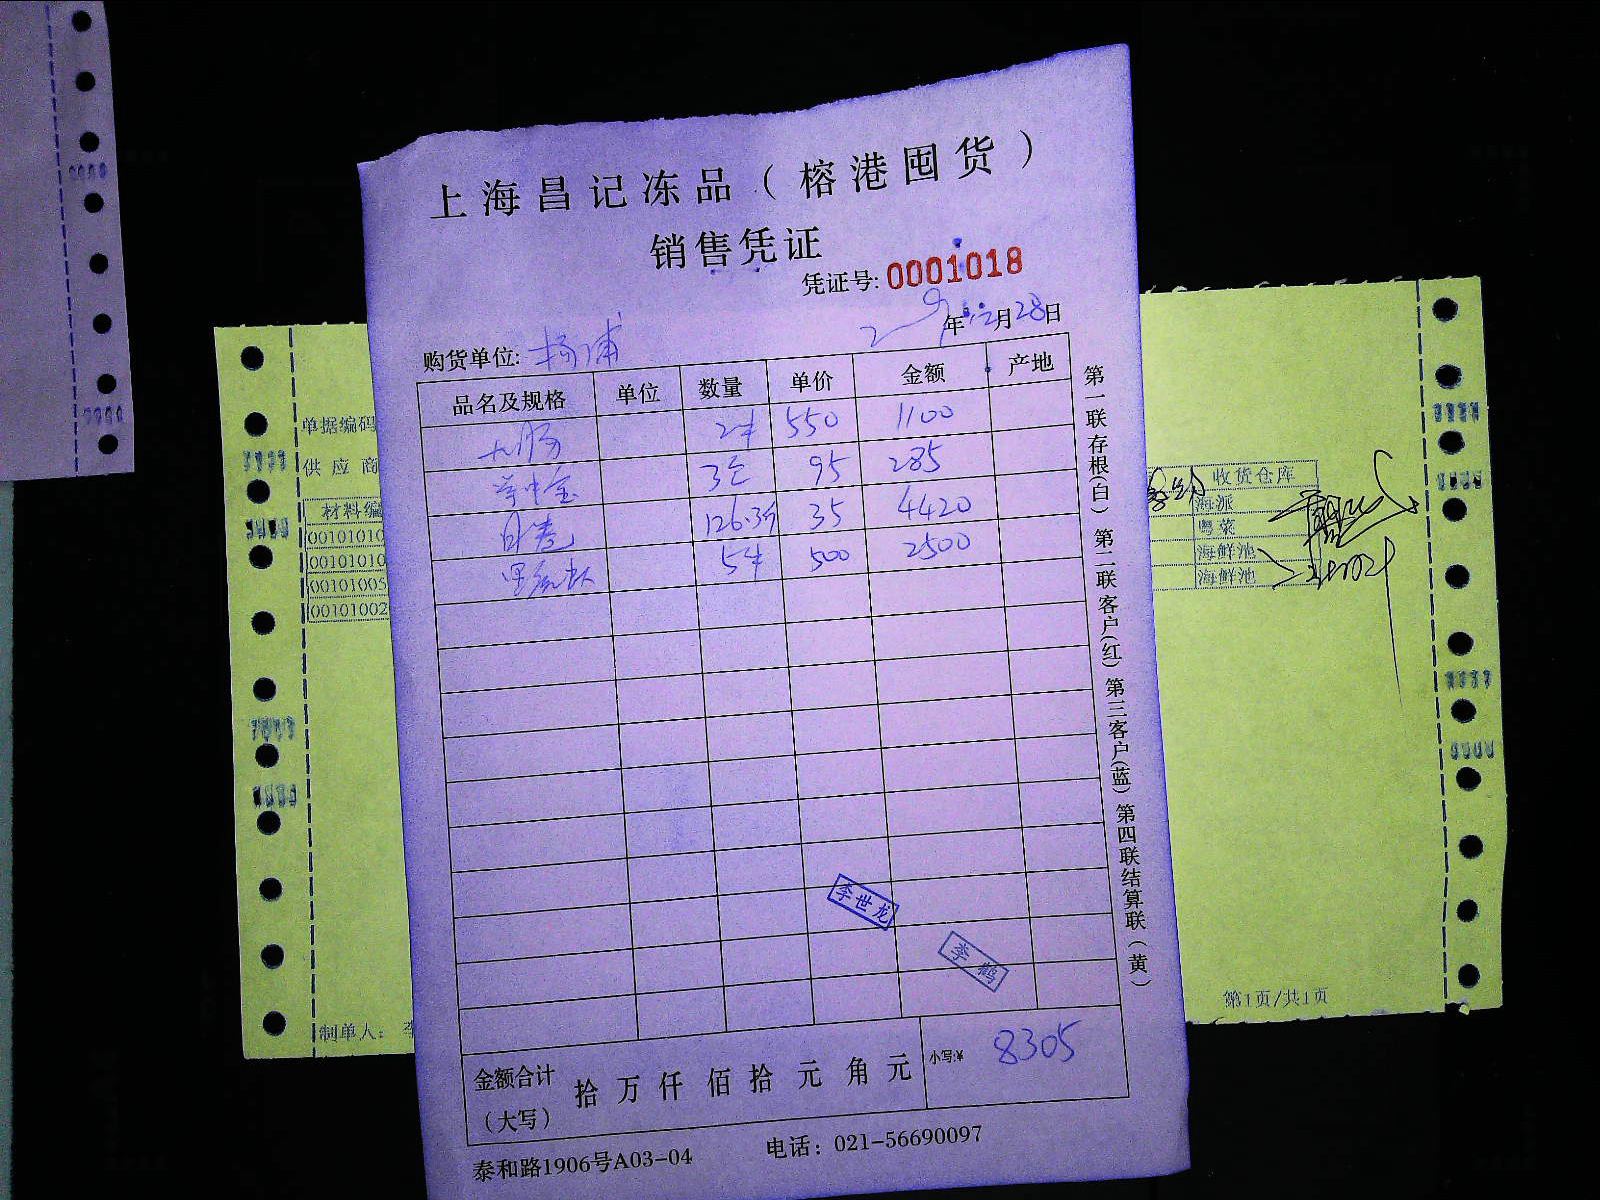 上海昌记冻品（榕港囤货）
销售凭证
凭证号: 0001018
年12月28日
购货单位: 杨浦
品名及规格 单位 数量 单价 金额 产地
大肠 2件 550 1100
95 285
126.3斤 35 4420
5件 500 2500
金额合计（大写） 拾 万 仟 佰 拾 元 角 元 小写:¥ 8305
泰和路1906号A03-04 电话：021-56690097
第一联存根(白) 第二联客户(红) 第三客户(蓝) 第四联结算联(黄)
李世龙
李鹤
单据编码
供应商
材料编
00101010
00101010
00101005
00101002
制单人：
收货仓库
海派
粤菜
海鲜池
海鲜池
第1页/共1页